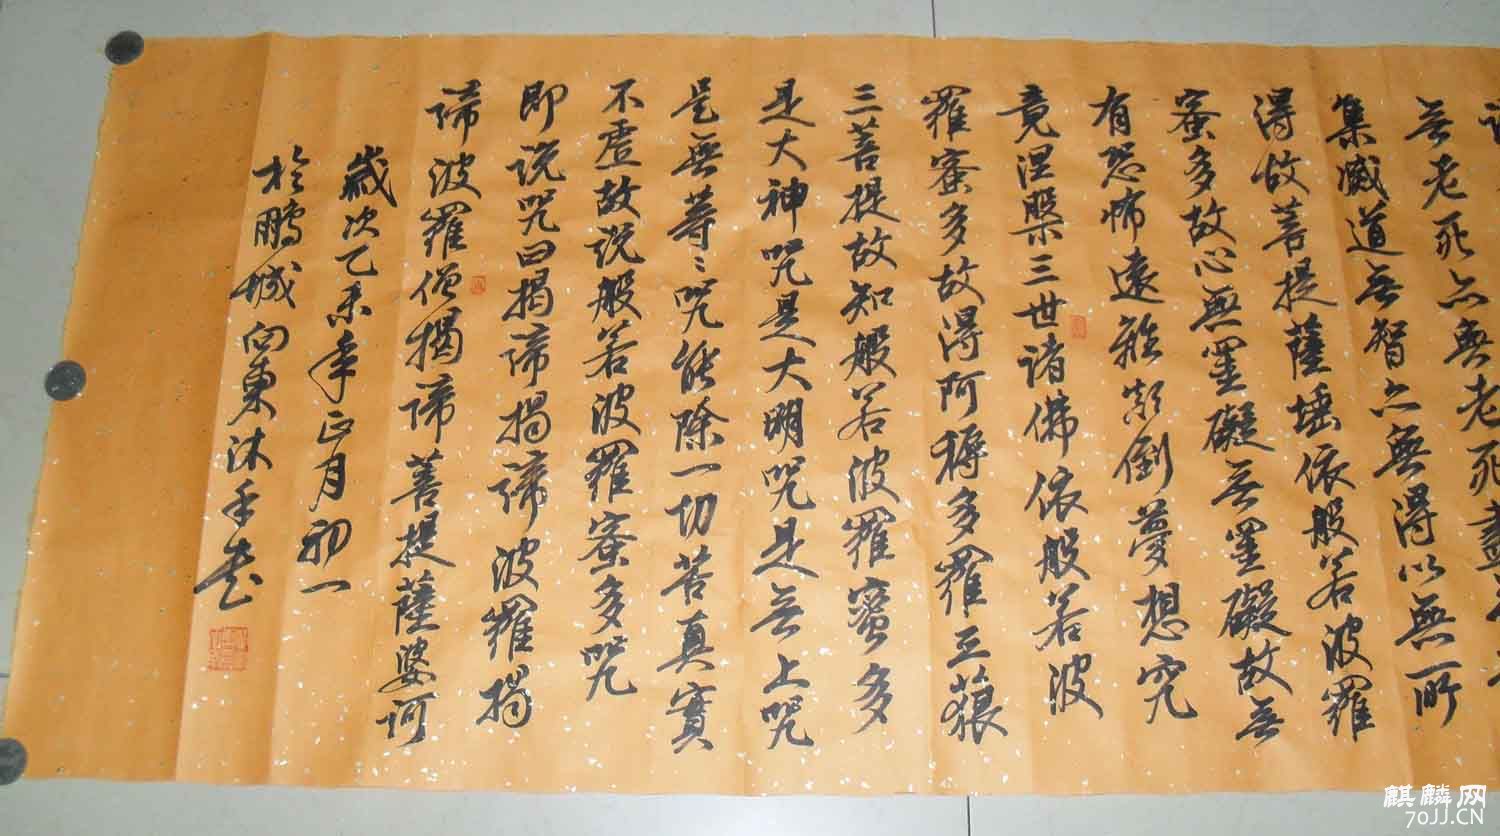 无老死亦無老死盡
集滅道无智亦無得以無所
得故菩提薩埵依般若波羅
蜜多故心無罣礙无罣礙故无
有恐怖遠離顛倒夢想究
竟涅槃三世諸佛依般若波
羅蜜多故得阿耨多羅三藐
三菩提故知般若波羅蜜多
是大神咒是大明咒是无上咒
是無等〻咒能除一切苦真實
不虛故說般若波羅蜜多咒
即說咒曰揭諦揭諦波羅揭
諦波羅僧揭諦菩提薩婆訶
歲次乙未年正月初一
於鵬城向東沐手書
麒麟网
70JJ.CN